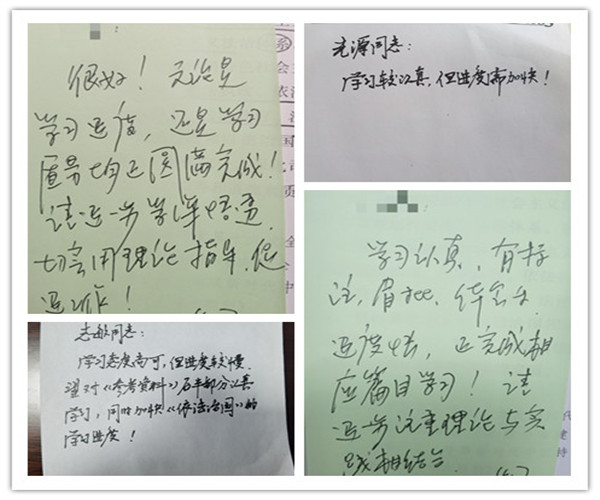 很好！无论是
学习进度，还是学习
质量均已圆满完成！
请进一步学深悟透，
切实用理论指导、促
进工作！
光源同志：
学习较认真，但进度需加快！
志敏同志：
学习态度尚可，但进度较慢
望对《参考资料》后半部分认真
学习，同时加快《依法治国》的
学习进度！
学习认真，有标
注，眉批，体会。
进度快，已完成相
应篇目学习！请
进一步注重理论与实
践相结合